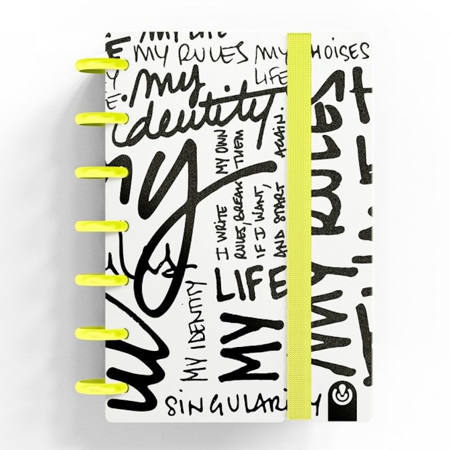 MY LIFE
MY RULES MY CHOISES
LIFE
my
identity
my
I WRITE MY OWN
RULES, BREAK THEM
IF I WANT,
AND START AGAIN.
MY IDENTITY
MY
LIFE
MY RULES
SINGULARITY